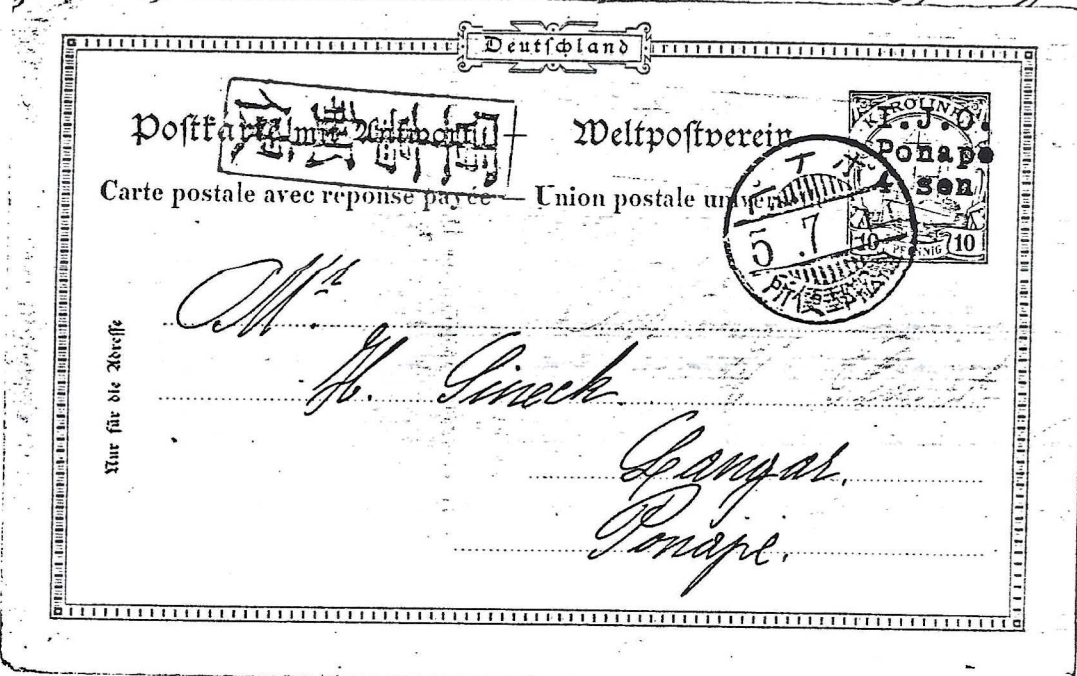 Deutschland
Postkarte mit Antwort — Weltpostverein
Carte postale avec réponse payée — Union postale
KAROLINEN
I.J.O.
Ponape
4 sen
10 PFENNIG 10
5.7
Nur für die Adresse
Mr.
H. Gineck.
Langar.
Ponape.